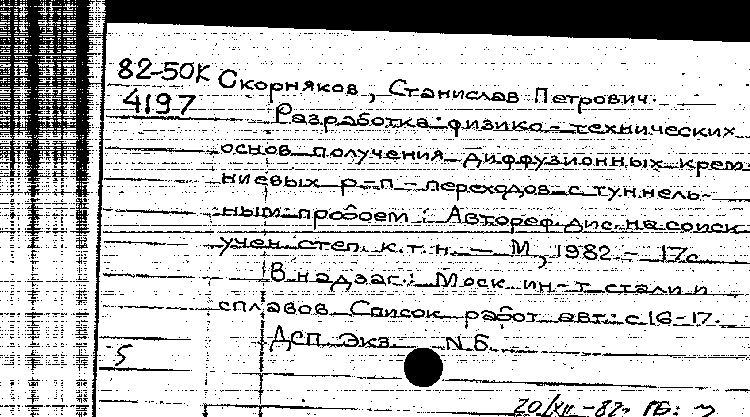 82-50К Скорняков, Станислав Петрович.
4197 Разработка физико-технических
основ получения диффузионных крем-
ниевых p-n-переходов с туннель-
ным пробоем: Автореф. дис. на соиск.
учен. степ. к.т.н. — М, 1982 - 17с
В надзаг.: Моск ин-т стали и
сплавов. Список работ авт.: с.16-17.
ДСП Экз N 6
5
20/XII-82